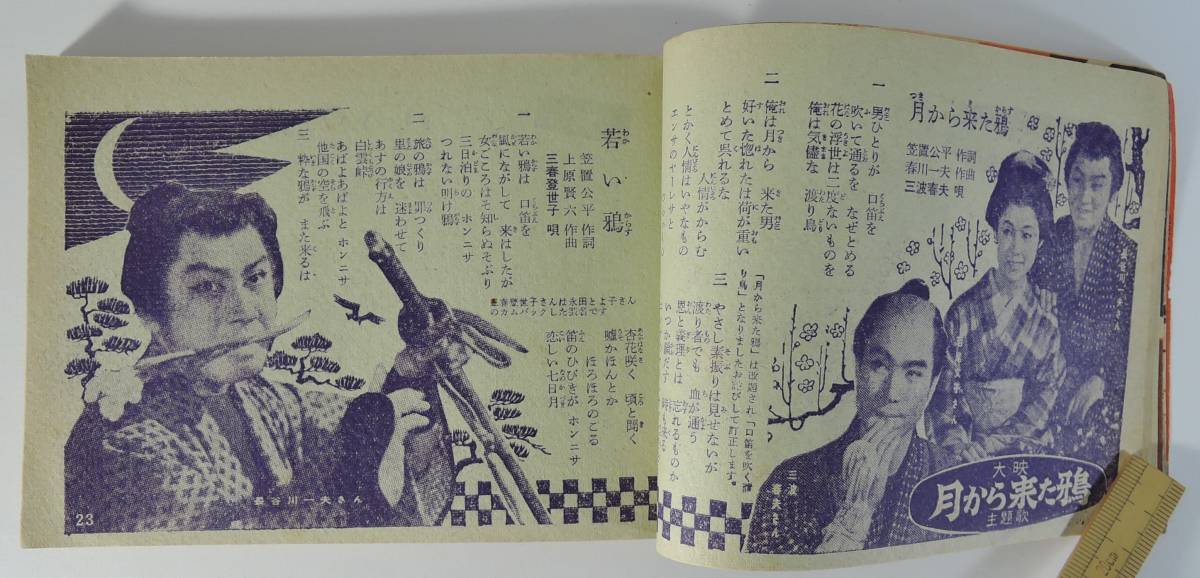 月から来た鴉
笠置公平 作詞
春川一夫 作曲
三波春夫 唄
一 男ひとりが 口笛を
吹いて通るを なぜとめる
花の浮世は二度ないものを
俺は気儘な 渡り鳥
二 俺は月から 来た男
好いた惚れたは荷が重い
とめて呉れるな 人情がからむ
とかく人情はいやなもの
三 やさし素振りは見せないが
渡り者でも 血が通う
恩と義理とは 忘れるものか
「月から来た鴉」は改題され「口笛を吹く渡
り鳥」となりましたお詫びして訂正します。
三波
春夫さん
大映
月から来た鴉
主題歌
若い鴉
笠置公平 作詞
上原賢六 作曲
三春登世子 唄
一 若い鴉は 口笛を
風にながして 来はしたが
女ごころはそ知らぬそぶり
三日泊りの ホンニサ
つれない明け鴉
二 旅の鴉は 罪つくり
里の娘を 迷わせて
あすの行方は 白雲峠
あばよあばよと ホンニサ
他国の空を飛ぶ
三 粋な鴉が また来るは
杏花咲く 頃と聞く
嘘かほんとか ほろほろのこる
笛のひびきが ホンニサ
恋しい七日月
三春登世子さんは永田とよ子さん
のカムバックした芸名です
長谷川一夫さん
23